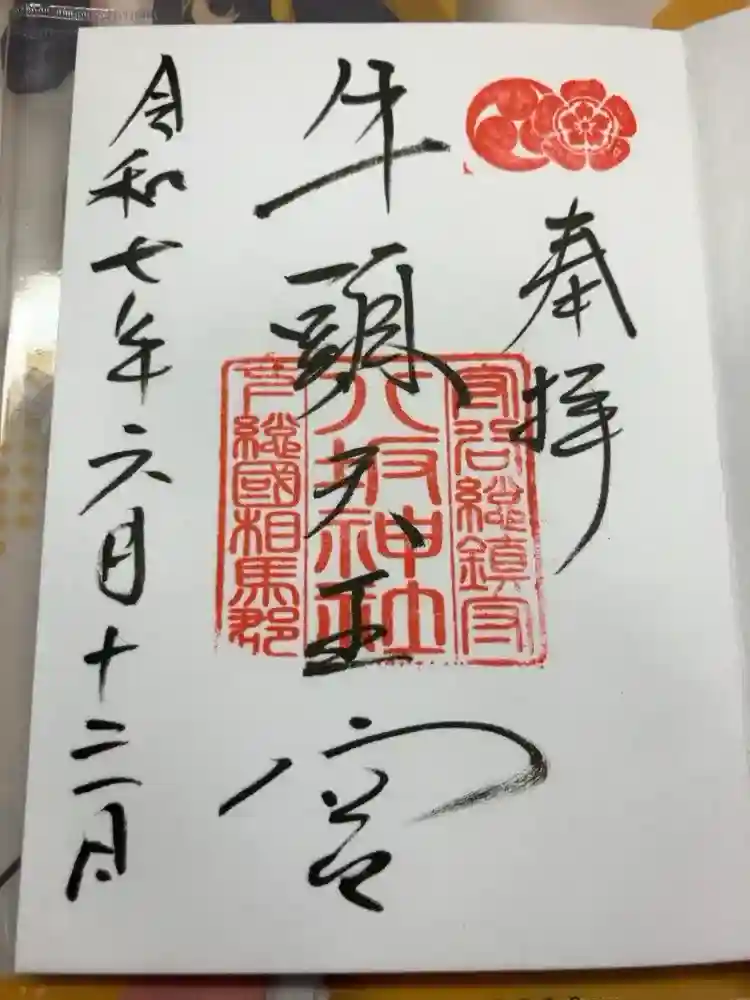 奉拝
守谷総鎮守
牛頭天王宮
八坂神社
下総國相馬郡
令和七年六月十二日